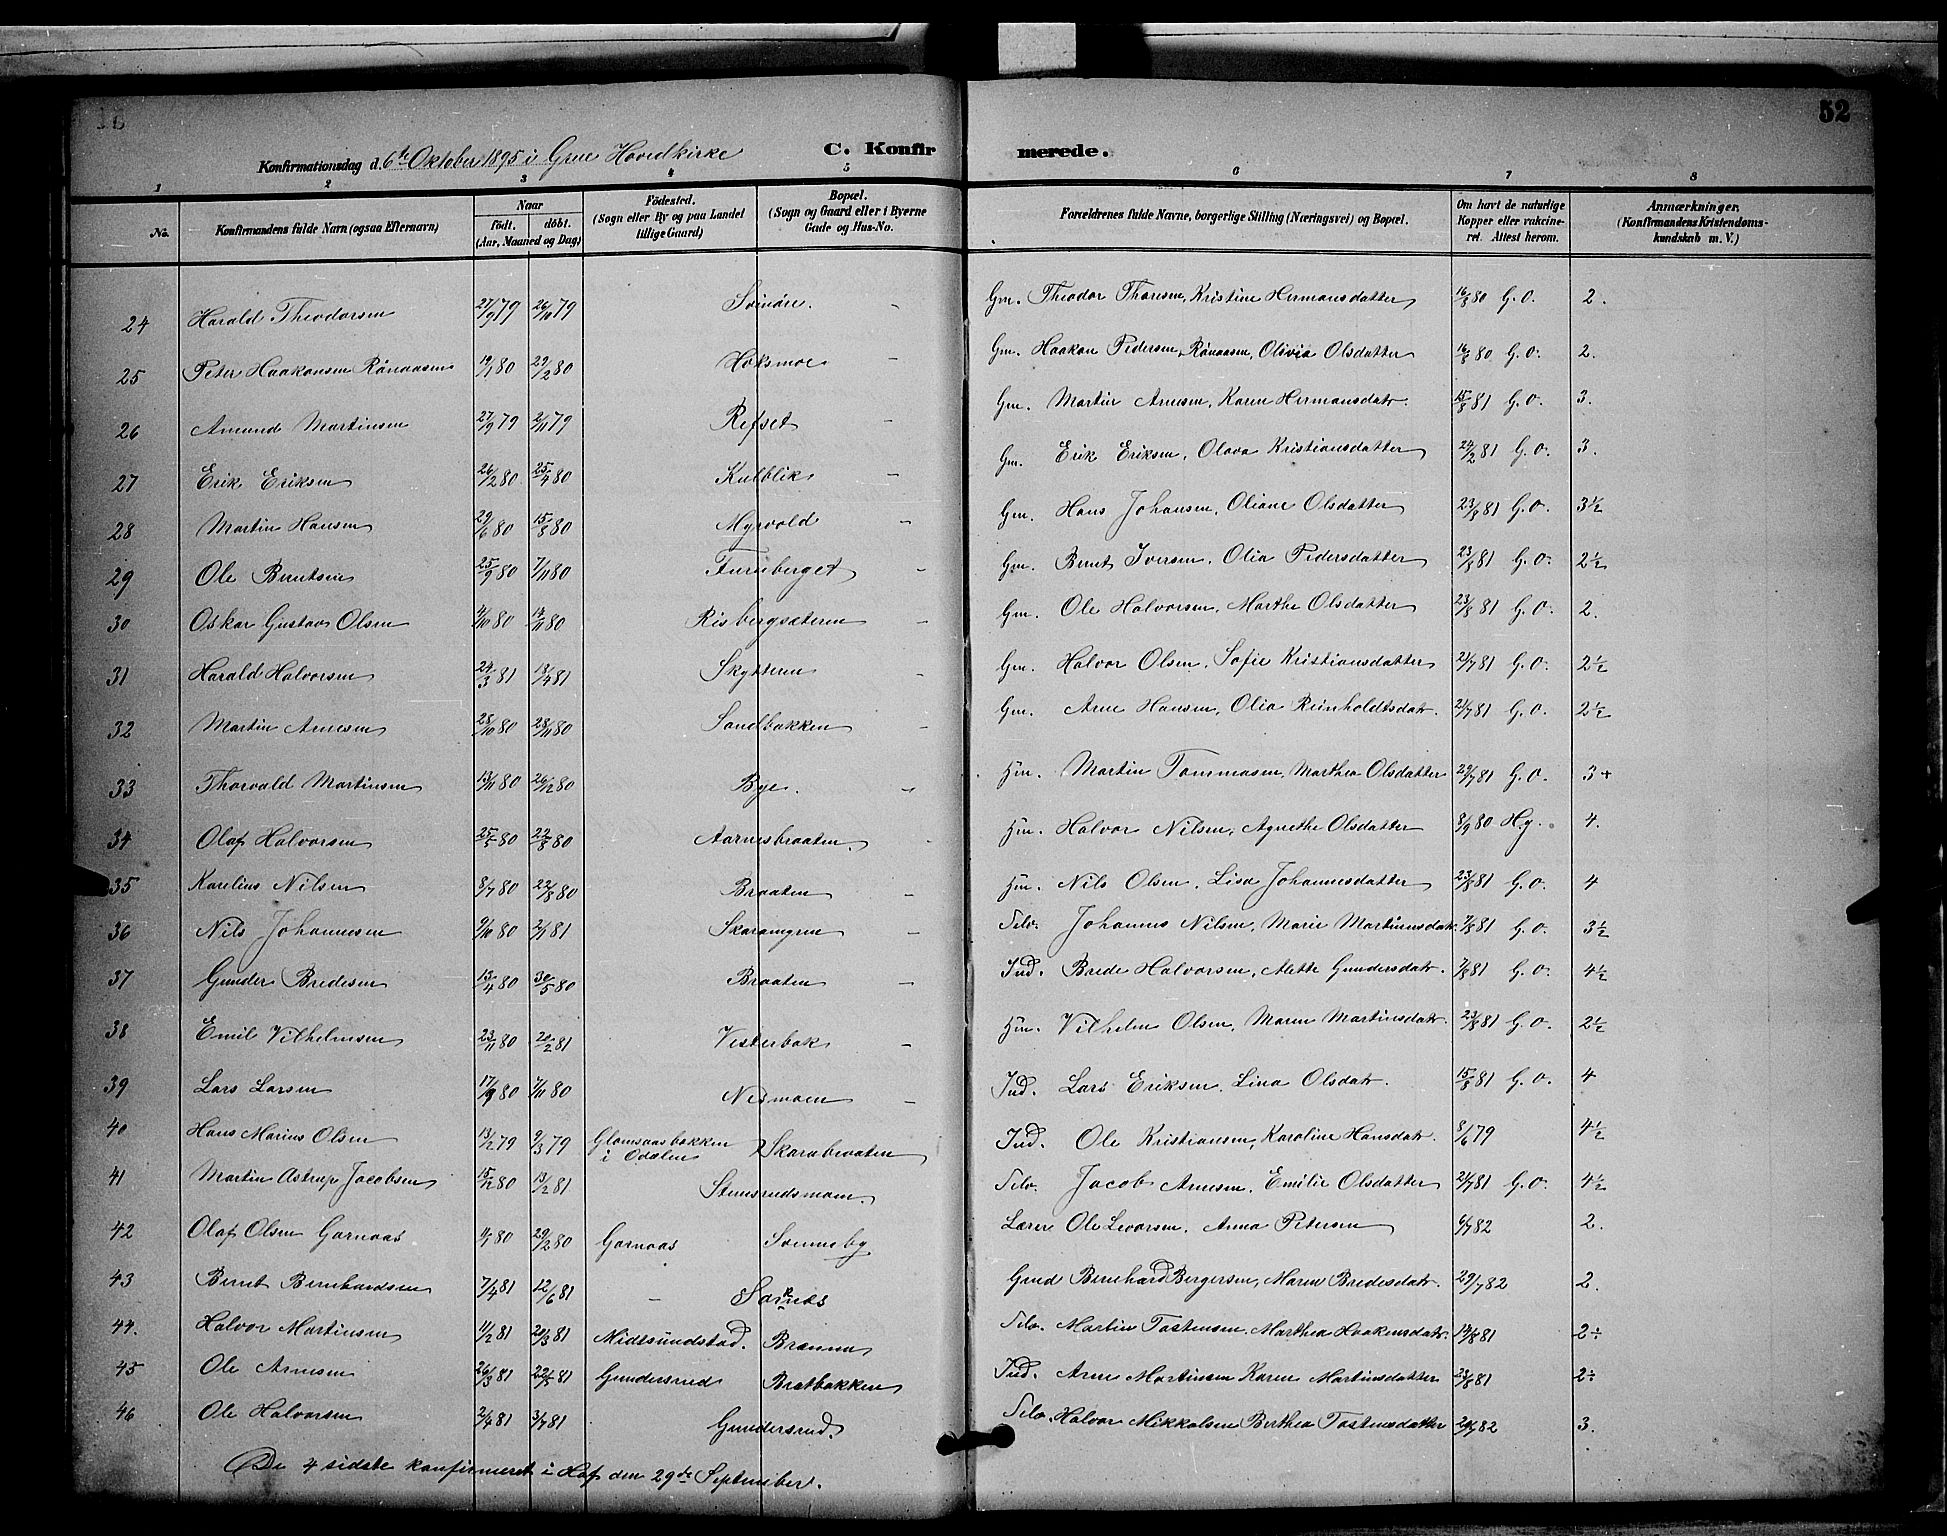 52
Konfirmationsdag d. 6te Oktober 1895 i Grue Hovedkirke C. Konfirmerede.
1 2 3 4 5 6 7 8
No.
Konfirmandens fulde Navn (ogsaa Efternavn)
Naar
født. døbt.
(Aar, Maaned og Dag)
Fødested.
(Sogn eller By og paa Landet
tillige Gaard)
Bopæl.
(Sogn og Gaard eller i Byerne
Gade og Hus-No.
Forældrenes fulde Navne, borgerlige Stilling (Næringsvei) og Bopæl.
Om havt de naturlige
Kopper eller vakcine-
ret. Attest herom.
Anmærkninger.
(Konfirmandens Kristendoms-
kundskab m. V.)
24 Harald Theodorsen 27/9 79 26/10 79 - Gm. Theodor Thoresen, Kristine Hermansdatter 16/8 80 G. O. 2.
25 Peter Haakonsen Rönaasen 19/1 80 29/2 80 Hoksmoe - Gm. Haakon Pedersen Rönaasen, Olivia Olsdatter 16/8 80 G. O. 2.
26 Amund Martinsen 27/9 79 2/11 79 Refset - Gm. Martin Arnesen, Karen Hermansdatr. 15/8 81 G. O. 3.
27 Erik Eriksen 26/2 80 25/4 80 Kulblik - Gm. Erik Eriksen, Olava Kristiansdatter 24/2 81 G. O. 3.
28 Martin Hansen 29/6 80 15/8 80 Myrvold - Gm. Hans Johansen, Oliane Olsdatter 23/8 81 G. O. 3½
29 Ole Berntsen 25/9 80 7/11 80 Furuberget - Gm. Bernt Iversen, Olia Pedersdatter 23/8 81 G. O. 2½
30 Oskar Gustav Olsen 4/10 80 14/11 80 Risbergsæteren - Gm. Ole Halvorsen, Marthe Olsdatter 23/8 81 G. O. 2.
31 Harald Halvorsen 24/3 81 18/4 81 Skytteren - Gm. Halvor Olsen, Sofie Kristiansdatter 2/7 81 G. O. 2½
32 Martin Arnesen 28/10 80 28/11 80 Sandbakken - Gm. Arne Hansen, Olia Reinholdtsdatr. 2/7 81 G. O. 2½
33 Thorvald Martinsen 13/11 80 26/12 80 Bye. - Hm. Martin Tommasen, Marthea Olsdatter 29/7 81 G. O. 3+
34 Olaf Halvorsen 25/5 80 22/8 80 Aarnesbraaten. Hm. Halvor Nilsen, Agnethe Olsdatter 8/9 80 Hg. 4.
35 Karelius Nilsen 8/7 80 22/8 80 Braaten - Hm. Nils Olsen, Lisa Johannesdatter 23/8 81 G. O. 4
36 Nils Johannesen 9/10 80 2/1 81 - Selv. Johannes Nilsen, Marie Martinusdatr. 7/8 81 G. O. 3½
37 Gunder Bredesen 13/4 80 30/5 80 Braaten - Ind. Brede Halvorsen, Mette Gundersdatr. 7/8 81 G. O. 4½
38 Emil Vilhelmsen 23/11 80 20/2 81 Vesterbak - Hm. Vilhelm Olsen, Maren Martinsdatr. 23/8 81 G. O. 2½
39 Lars Larsen 17/9 80 7/11 80 Nesmoen - Ind. Lars Eriksen, Lina Olsdatr. 15/8 81 G. O. 4
40 Hans Marius Olsen 13/2 79 9/3 79 Glomsaasbakken i Odalen Skarabraaten Ind. Ole Kristiansen, Karoline Hansdatr. 8/6 79 4½
41 Martin Astrup Jacobsen 15/12 80 13/2 81 Stensrudsmoen. Selv. Jacob Arnesen, Emilie Olsdatter 2/7 81 G. O. 4½
42 Olaf Olsen Garnaas 1/1 80 29/2 80 Garnaas Svenneby Lærer Ole Levorsen, Anna Petersen 6/7 82 2.
43 Bernt Bernhardsen 7/4 81 12/6 81 - Gmd Bernhard Bergersen, Maren Bredesdatr. 29/7 82 2.
44. Halvor Martinsen 11/2 81 20/3 81 Midtsundstad. Brænnen Selv. Martin Tostensen, Marthea Haakensdatr. 19/8 81 2÷
45 Ole Arnesen 26/3 81 22/5 81 Gundersrud Bratbakken Ind. Arne Martinsen Karen Martinsdatter 23/8 81 2÷
46 Ole Halvorsen 2/4 81 3/7 81 Gundersrud. Selv. Halvor Mikkelsen Berthea Tostensdatter 29/7 82 3.
De 4 sidste konfirmeret i Hof den 29de September.